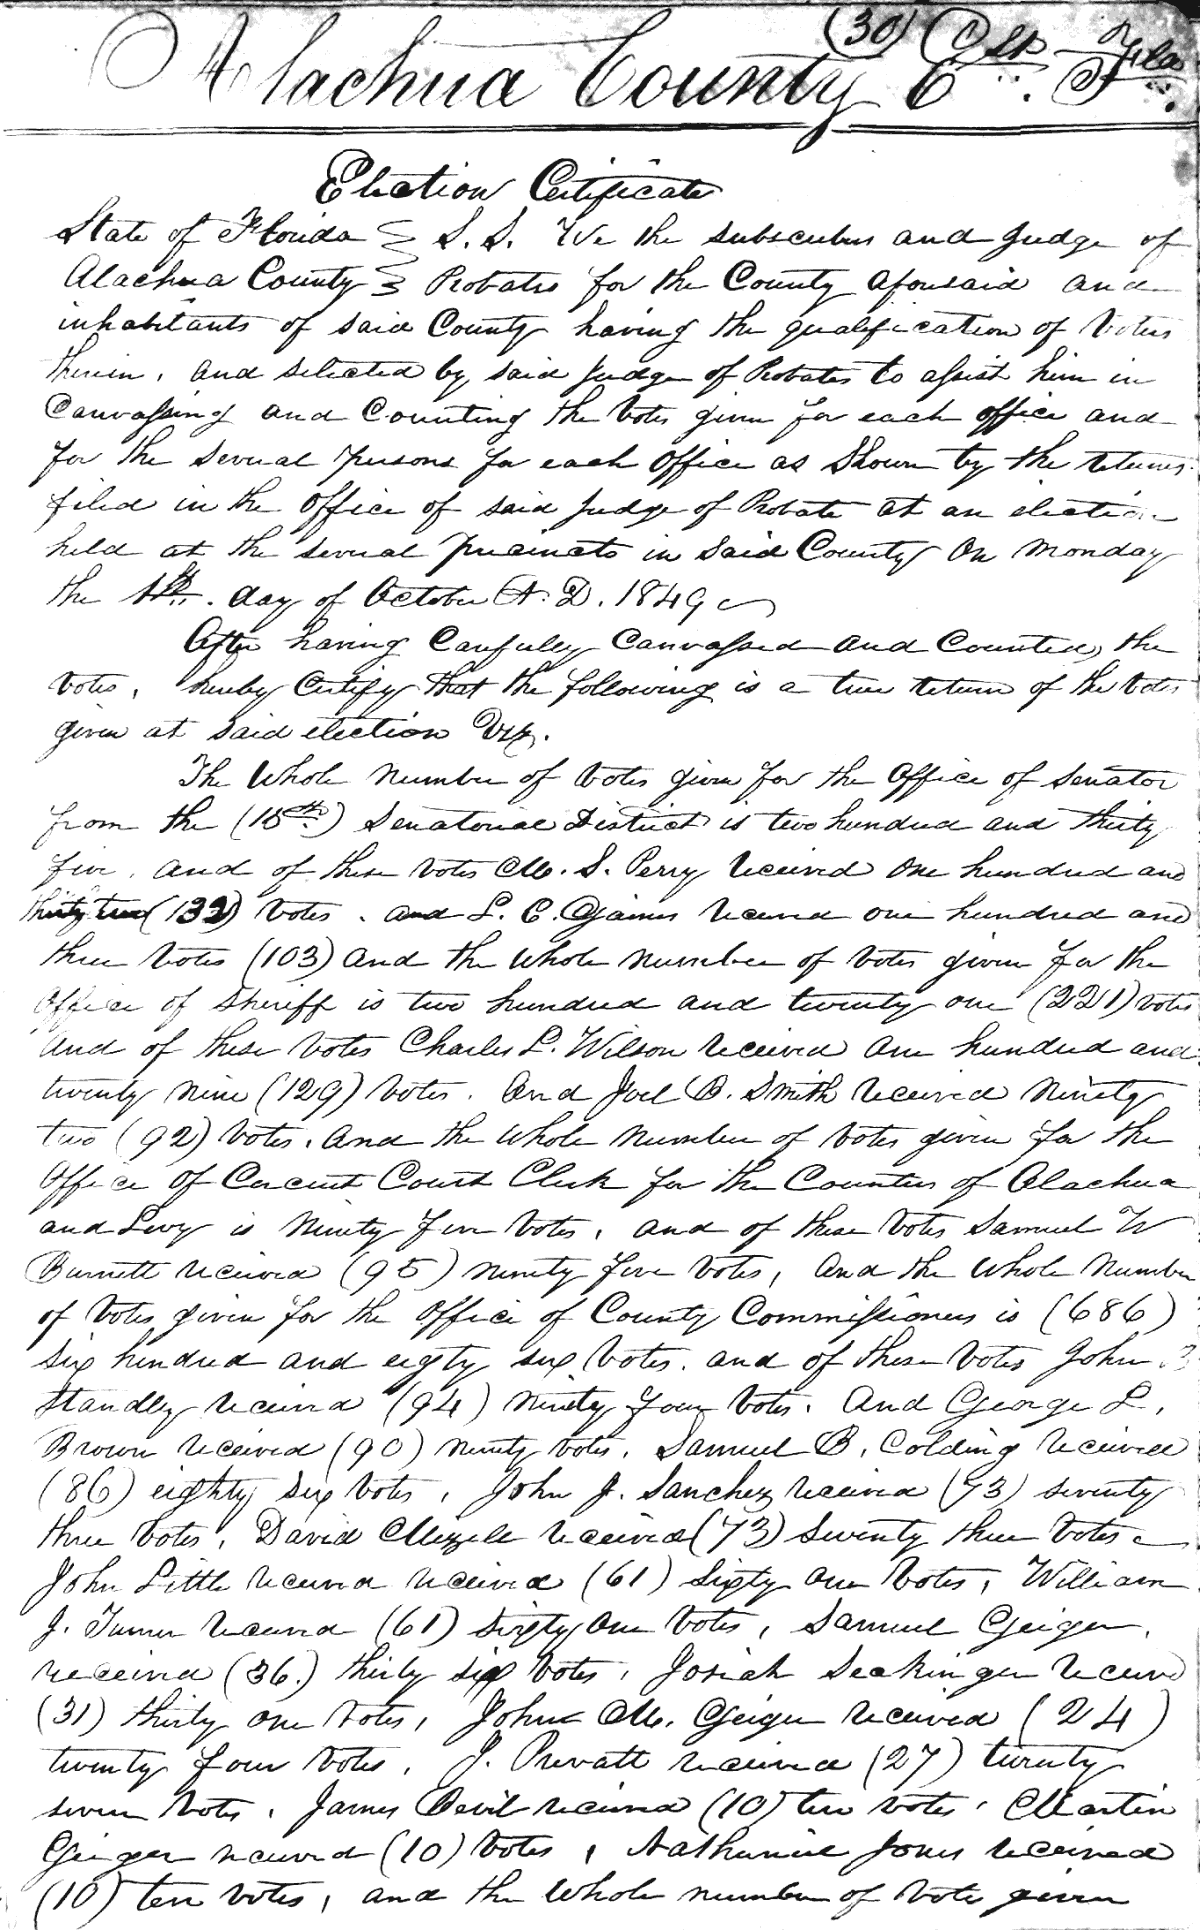 (30)
Alachua County E. Fla
Election Certificate
State of Florida } S. S. We the subscribers and Judge of
Alachua County } Probates for the County aforesaid and
inhabitants of said County having the qualification of Voters
therein, and selected by said Judge of Probates to assist him in
Canvassing and Counting the Votes given for each office and
for the several persons for each office as Shown by the returns
filed in the office of said Judge of Probate at an election
held at the several precincts in said County On Monday
the 1st. day of October A. D. 1849
After having Carefully Canvassed and Counted, the
Votes, hereby Certify that the following is a true return of the Votes
given at said election Viz.
The Whole Number of Votes given for the Office of Senator
from the (15th) Senatorial District is two hundred and thirty
five, and of these votes M. S. Perry received One hundred and
thirty two (132) Votes. and L. C. Gaines received one hundred and
three Votes (103) and the whole number of votes given for the
Office of Sheriff is two hundred and twenty one (221) votes
and of these votes Charles L. Wilson received One hundred and
twenty nine (129) votes. And Joel B. Smith received Ninety
two (92) Votes. And the whole Number of Votes given for the
Office of Circuit Court Clerk for the Counties of Alachua
and Levy is Ninety five Votes, and of these Votes Samuel W
Burnett received (95) ninety five Votes, And the Whole Number
of Votes given for the Office of County Commissioners is (686)
Six hundred and eigty six Votes. and of these Votes John B
Standley received (94) Ninety four Votes. And George L.
Brown received (90) ninety votes. Samuel B. Colding received
(86) eighty six Votes, John J. Sanchez received (73) seventy
three Votes, David Mizell received (73) Seventy three Votes
John Little received received (61) Sixty one Votes, William
J. Turner received (61) Sixty One Votes, Samuel Geiger,
received (36.) thirty six Votes, Josiah Seckinger receive
(31) thirty one Votes, John M. Geiger received (24)
twenty four Votes, J. Prevatt received (27) twenty
seven Votes, James Devil received (10) ten votes, Martin
Geiger received (10) Votes, Nathaniel Jones received
(10) ten votes, and the Whole number of Votes given